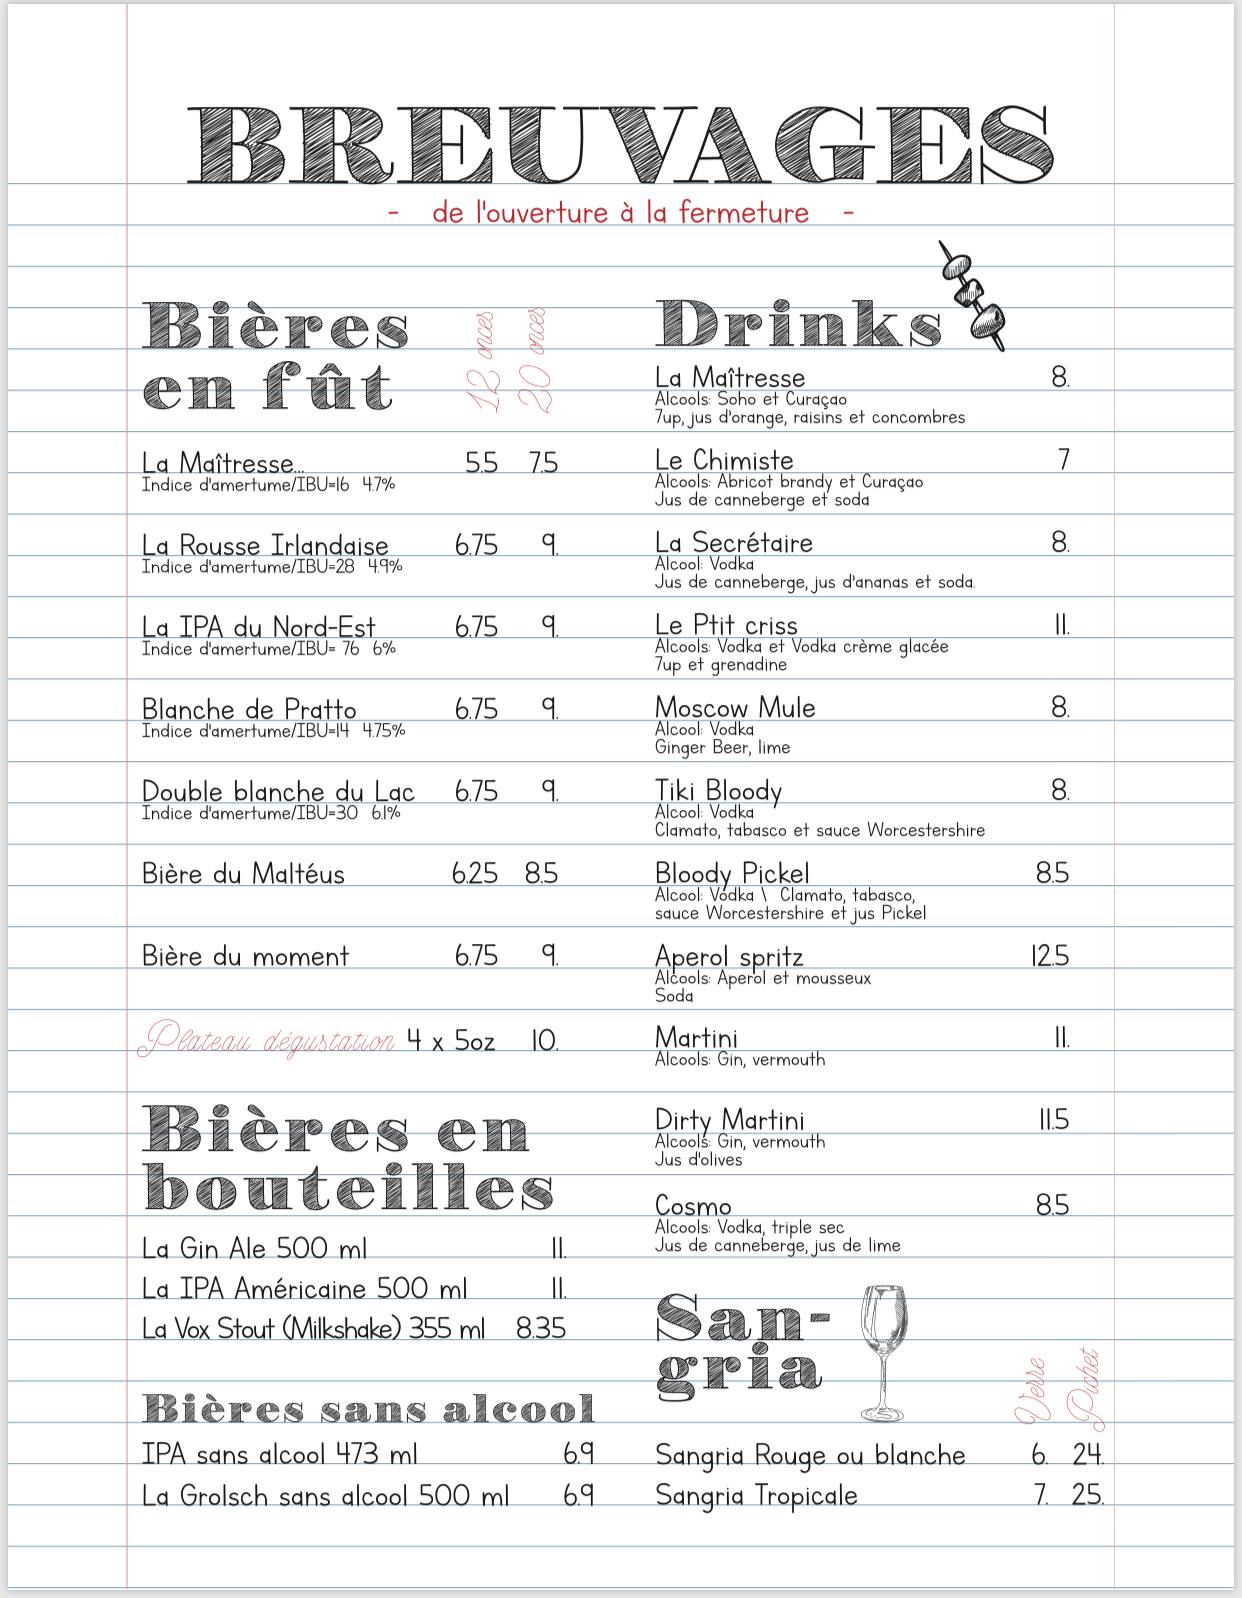 BREUVAGES
- de l'ouverture à la fermeture -
Bières
en fût
12 onces
20 onces
La Maîtresse... 5.5 7.5
Indice d'amertume/IBU=16 4.7%
La Rousse Irlandaise 6.75 9.
Indice d'amertume/IBU=28 4.9%
La IPA du Nord-Est 6.75 9.
Indice d'amertume/IBU= 76 6%
Blanche de Pratto 6.75 9.
Indice d'amertume/IBU=14 4.75%
Double blanche du Lac 6.75 9.
Indice d'amertume/IBU=30 6.1%
Bière du Maltéus 6.25 8.5
Bière du moment 6.75 9.
Plateau dégustation 4 x 5oz 10.
Bières en
bouteilles
La Gin Ale 500 ml 11.
La IPA Américaine 500 ml 11.
La Vox Stout (Milkshake) 355 ml 8.35
Bières sans alcool
IPA sans alcool 473 ml 6.9
La Grolsch sans alcool 500 ml 6.9
Drinks
La Maîtresse 8.
Alcools: Soho et Curaçao
7up, jus d'orange, raisins et concombres
Le Chimiste 7
Alcools: Abricot brandy et Curaçao
Jus de canneberge et soda
La Secrétaire 8.
Alcool: Vodka
Jus de canneberge, jus d'ananas et soda.
Le Ptit criss 11.
Alcools: Vodka et Vodka crème glacée
7up et grenadine
Moscow Mule 8.
Alcool: Vodka
Ginger Beer, lime
Tiki Bloody 8.
Alcool: Vodka
Clamato, tabasco et sauce Worcestershire
Bloody Pickel 8.5
Alcool: Vodka \ Clamato, tabasco,
sauce Worcestershire et jus Pickel
Aperol spritz 12.5
Alcools: Aperol et mousseux
Soda
Martini 11.
Alcools: Gin, vermouth
Dirty Martini 11.5
Alcools: Gin, vermouth
Jus d'olives
Cosmo 8.5
Alcools: Vodka, triple sec
Jus de canneberge, jus de lime
San-
gria
Verre
Pichet
Sangria Rouge ou blanche 6. 24.
Sangria Tropicale 7. 25.